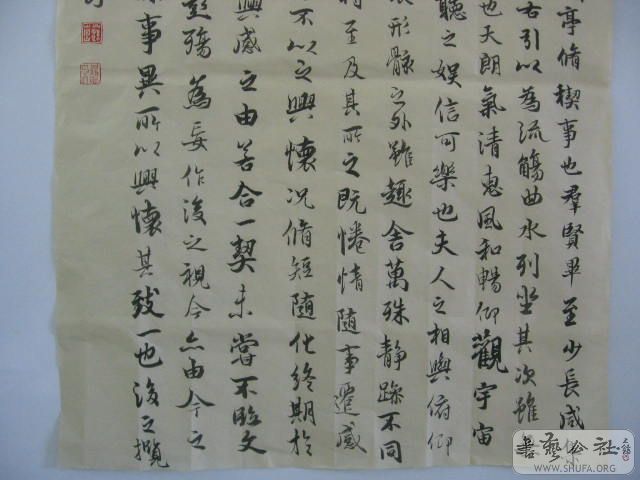 亭脩禊事也羣賢畢至少長咸集
右引以為流觴曲水列坐其次雖
也天朗氣清惠風和暢仰觀宇宙
聽之娱信可樂也夫人之相與俯仰
形骸之外雖趣舍萬殊静躁不同
至及其所之既惓情隨事遷感
不以之興懷况脩短隨化終期於
興感之由若合一契未嘗不臨文
彭殤為妄作後之視今亦由今之
事異所以興懷其致一也後之攬
書藝公社
WWW.SHUFA.ORG